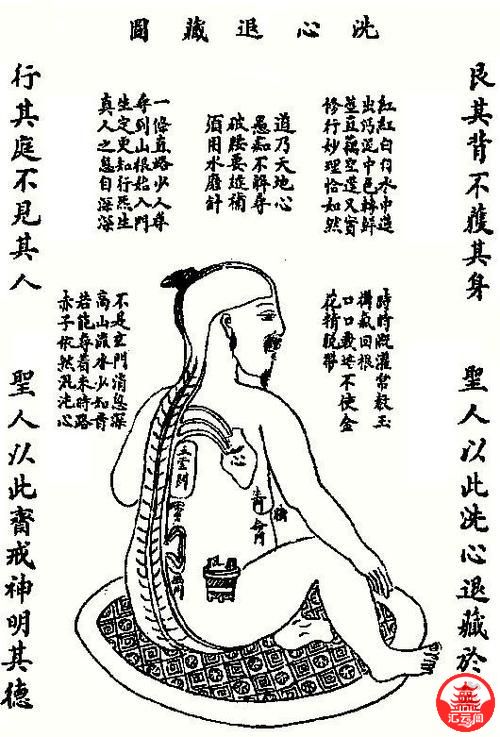 洗心退藏圖
艮其背不獲其身
聖人以此洗心退藏於
紅紅白白水中蓮
出污泥中色轉鮮
莖直藕空蓬又實
修行妙理恰如然
道乃天地心
愚痴不解尋
破腰要補
須用水磨針
一條直路少人尋
尋到山根始入門
定更知行炁
真人之息自深深
時時溉灌常教玉
樹氣回根
日日栽培不使金
花精脫蒂
不是玄門消息深
高山流水少知音
若能尋着來時路
赤子依然混沌心
心
臍
生門
命門
行其庭不見其人
聖人以此齋戒神明其德
汇云阁